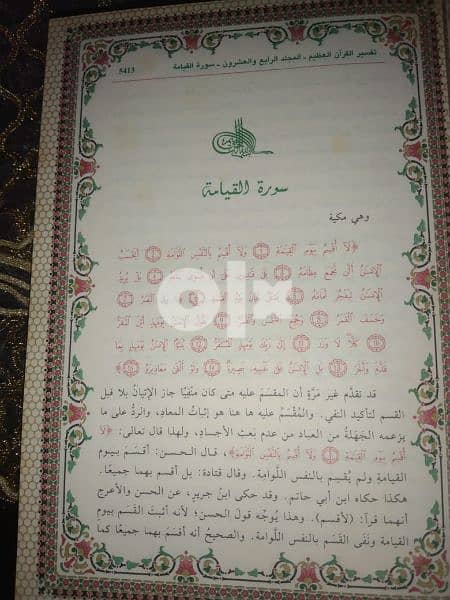 تفسير القرآن العظيم - المجلد الرابع والعشرون - سورة القيامة
5413
سورة القيامة
وهي مكية
﴿لَا أُقْسِمُ بِيَوْمِ الْقِيَامَةِ ۝ وَلَا أُقْسِمُ بِالنَّفْسِ اللَّوَّامَةِ ۝ أَيَحْسَبُ
الْإِنسَانُ أَلَّن نَّجْمَعَ عِظَامَهُ ۝ بَلَىٰ ۝ بَلْ يُرِيدُ
الْإِنسَانُ لِيَفْجُرَ أَمَامَهُ ۝ الْقِيَامَةِ ۝ بَرِقَ الْبَصَرُ ۝
وَخَسَفَ الْقَمَرُ ۝ وَجُمِعَ الشَّمْسُ وَالْقَمَرُ ۝ يَقُولُ الْإِنسَانُ يَوْمَئِذٍ أَيْنَ الْمَفَرُّ
۝ كَلَّا لَا وَزَرَ ۝ إِلَىٰ رَبِّكَ يَوْمَئِذٍ الْمُسْتَقَرُّ ۝ يُنَبَّأُ الْإِنسَانُ يَوْمَئِذٍ بِمَا
قَدَّمَ وَأَخَّرَ ۝ بَلِ الْإِنسَانُ عَلَىٰ نَفْسِهِ بَصِيرَةٌ ۝ وَلَوْ أَلْقَىٰ مَعَاذِيرَهُ ۝﴾
قد تقدَّم غير مَرَّةٍ أن المقسَم عليه متى كان منْفِيًّا جاز الإتيانُ بلا قبل
القسم لتأكيد النفي. والمُقْسَمُ عليه ها هنا هو إثباتُ المعادِ، والردُّ على ما
يزعمه الجَهَلَةُ من العباد من عدم بَعثِ الأجساد، ولهذا قال تعالى: ﴿لَا
أُقْسِمُ بِيَوْمِ الْقِيَامَةِ ۝ وَلَا أُقْسِمُ بِالنَّفْسِ اللَّوَّامَةِ﴾، قال الحسن: أقسَم بيوم
القيامةِ ولم يقسِم بالنفس اللَّوامة. وقال قتادة: بل أقسم بهما جميعًا.
هكذا حكاه ابن أبي حاتم. وقد حكى ابنُ جريرٍ، عن الحسن والأعرج
أنهما قرآ: (لأقسم). وهذا يُوجِّه قولَ الحسن؛ لأنه أثبتَ القَسَم بيومِ
القيامة ونَفَى القَسَم بالنفس اللَّوامة. والصحيحُ أنه أقسَمَ بهما جميعًا كما
olx